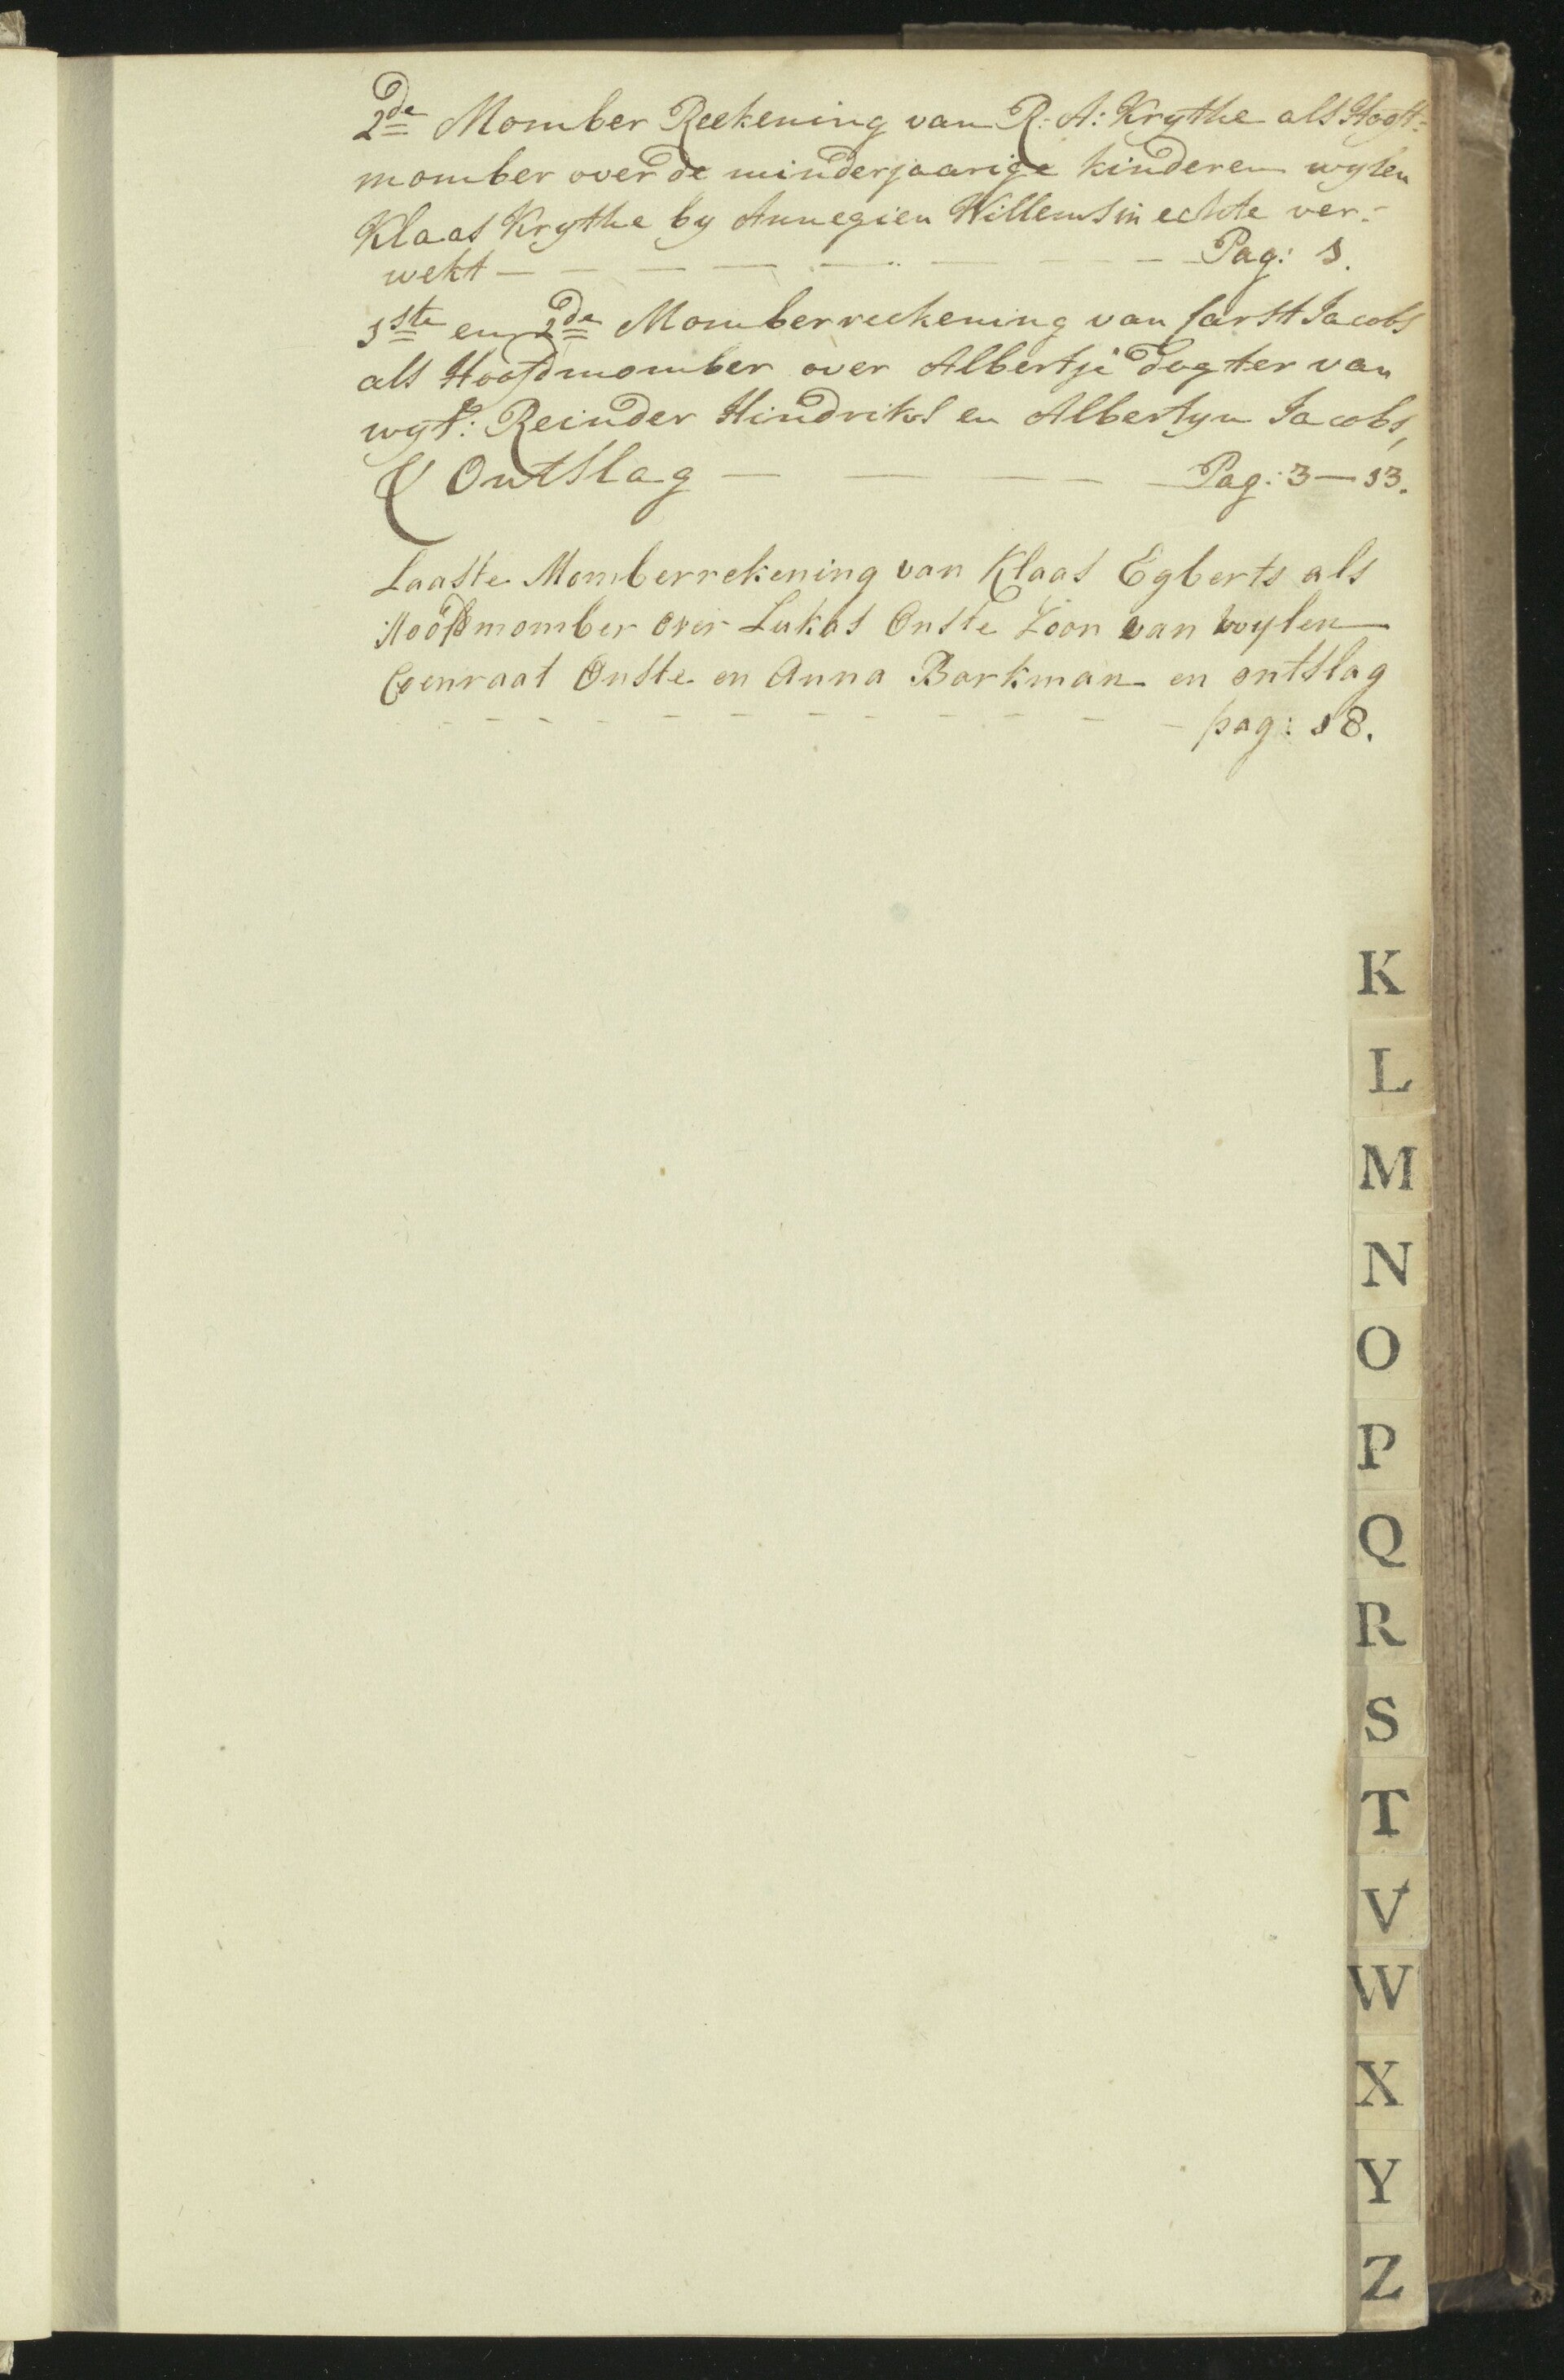 2de Momber Reekening van R: A: Krythe als Hooft=
momber over de minderjaarige kinderen wylen
Klaas Krythe by Annegien Willems in echte ver=
wekt - - - - - - - Pag: 1.
1ste en 2de Momberreekening van Jacobs
als Hoofdmomber over Albertje dogter van
wyl: Reinder Hindriks en Albertyn Jacobs,
& Ontslag - - - - Pag: 3 - 13.
Laaste Momberrekening van Klaas Egberts als
Hoofdmomber over Lukas Onste Zoon van wylen
Coenraat Onste en Anna Barkman en ontslag
- - - - - - - - - - - - pag: 18.
K
L
M
N
O
P
Q
R
S
T
V
W
X
Y
Z